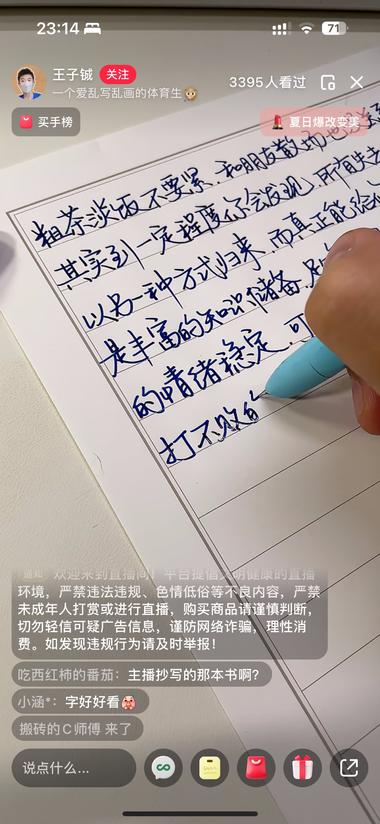 23:14
71
王子铖
关注
一个爱乱写乱画的体育生
3395人看过
买手榜
夏日爆改变美
粗茶淡饭不要累，和朋友散场也
其实到一定程度你会发现，所有失去
以另一种方式归来，而真正能给
是丰富的知识储备，足
的情绪稳定，可
打不败
通知 欢迎来到直播间！平台提倡文明健康的直播
环境，严禁违法违规、色情低俗等不良内容，严禁
未成年人打赏或进行直播，购买商品请谨慎判断，
切勿轻信可疑广告信息，谨防网络诈骗，理性消
费。如发现违规行为请及时举报！
吃西红柿的番茄：主播抄写的那本书啊？
小涵*：字好好看
搬砖的C师傅 来了
说点什么...